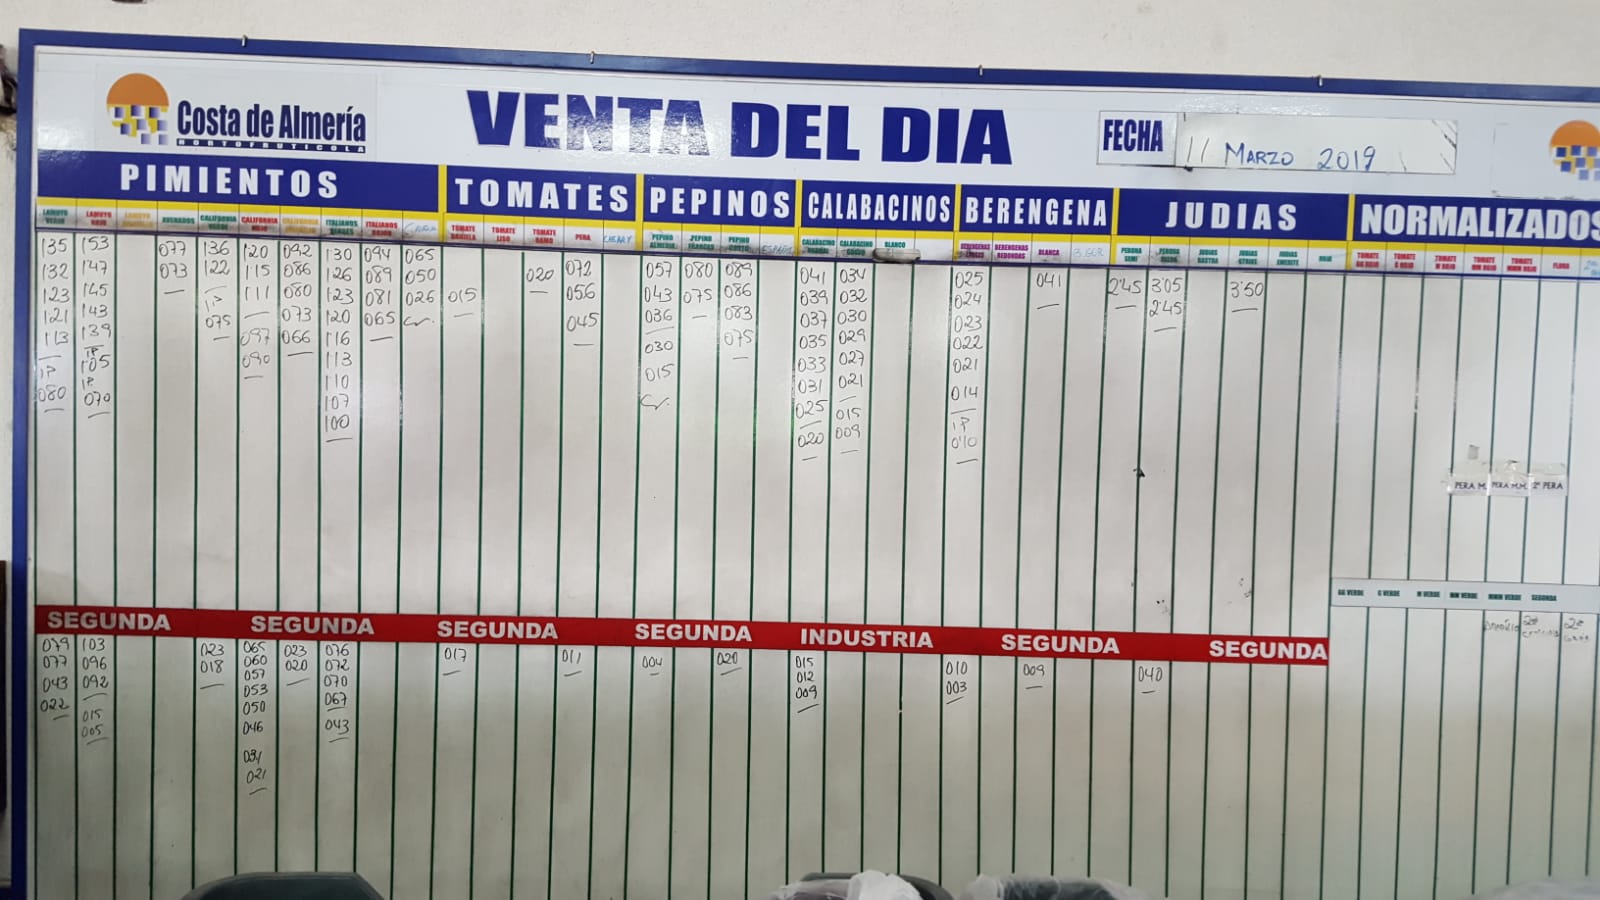 Costa de Almería
HORTOFRUTICOLA
VENTA DEL DIA
FECHA
11 MARZO 2019
PIMIENTOS
TOMATES
PEPINOS
CALABACINOS
BERENGENA
JUDIAS
NORMALIZADOS
LAMUYO VERDE
LAMUYO ROJO
LAMUYO
ASURADOS
CALIFORNIA VERDE
CALIFORNIA ROJO
CALIFORNIA
ITALIANOS VERDES
ITALIANOS ROJOS
TOMATE DANIELA
TOMATE LISO
TOMATE RAMO
PERA
CHERRY
PEPINO ALMERIA
PEPINO FRANCES
PEPINO CORTO
ESPAÑOL
CALABACINO
CALABACINO GORDO
BLANCO
BERENGENAS
BERENGENAS REDONDAS
BLANCA
PERONA SEMI
PERONA
JUDIAS RASTRA
JUDIAS
JUDIAS
ROJO
TOMATE GG ROJO
TOMATE G ROJO
TOMATE M ROJO
TOMATE MM ROJO
TOMATE MMM ROJO
FLORA
135
132
123
121
113
1P
080
153
147
145
143
139
1P
105
1P
070
077
073
136
122
1P
075
120
115
111
097
090
092
086
080
073
066
130
126
123
120
116
113
110
107
100
094
089
081
065
065
050
026
015
020
072
056
045
057
043
036
030
015
080
075
089
086
083
075
041
039
037
035
033
031
025
020
034
032
030
029
027
021
015
009
025
024
023
022
021
014
1P
010
041
2'45
3'05
2'45
3'50
PERA M.
PERA M.M.
2ª PERA
GG VERDE
G VERDE
M VERDE
MM VERDE
MMM VERDE
SEGUNDA
SEGUNDA
SEGUNDA
SEGUNDA
SEGUNDA
INDUSTRIA
SEGUNDA
SEGUNDA
079
077
043
022
103
096
092
015
005
023
018
065
060
057
053
050
046
034
021
023
020
076
072
070
067
043
017
011
004
020
015
012
009
010
003
009
040